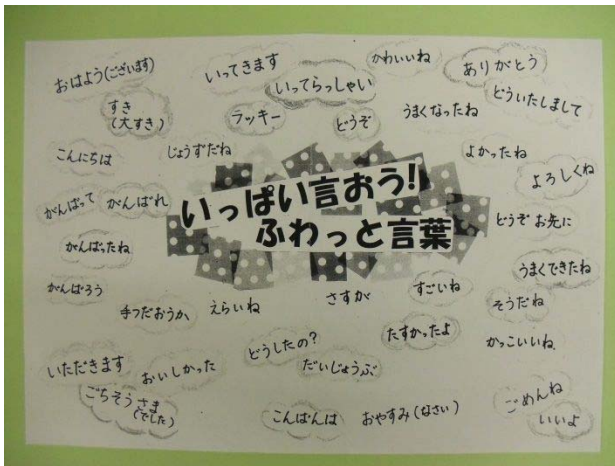 おはよう(ございます)
いってきます
かわいいね
ありがとう
いってらっしゃい
どういたしまして
すき
(大すき)
ラッキー
どうぞ
うまくなったね
こんにちは
じょうずだね
よかったね
よろしくね
がんばって
がんばれ
いっぱい言おう!
ふわっと言葉
どうぞ お先に
がんばったね
うまくできたね
がんばろう
手つだおうか
えらいね
さすが
すごいね
そうだね
どうしたの?
たすかったよ
かっこいいね
いただきます
おいしかった
だいじょうぶ
ごちそうさま
(でした)
こんばんは
おやすみ(なさい)
ごめんね
いいよ